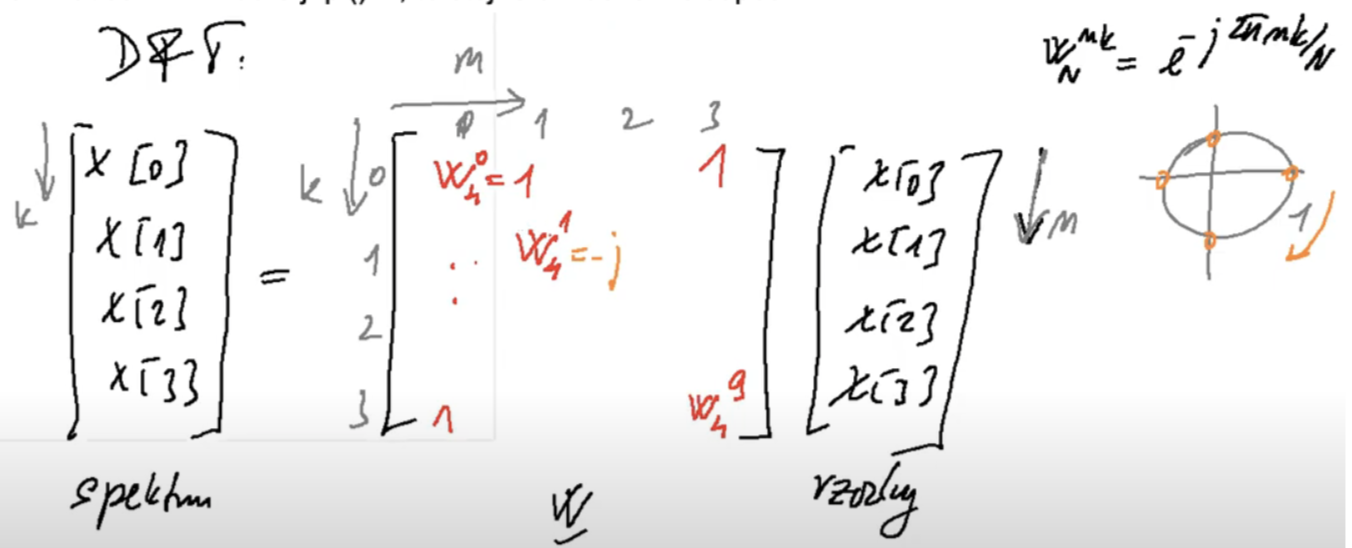 DFT.
W_N^{nk} = e^{-j2πnk/N}
n
0 1 2 3
k [X[0] X[1] X[2] X[3]] = k 0 1 2 3 [W_4^0 = 1 1 W_4^1 = -j 1 W_4^9] [x[0] x[1] x[2] x[3]] n
1
spektrum W vzorky